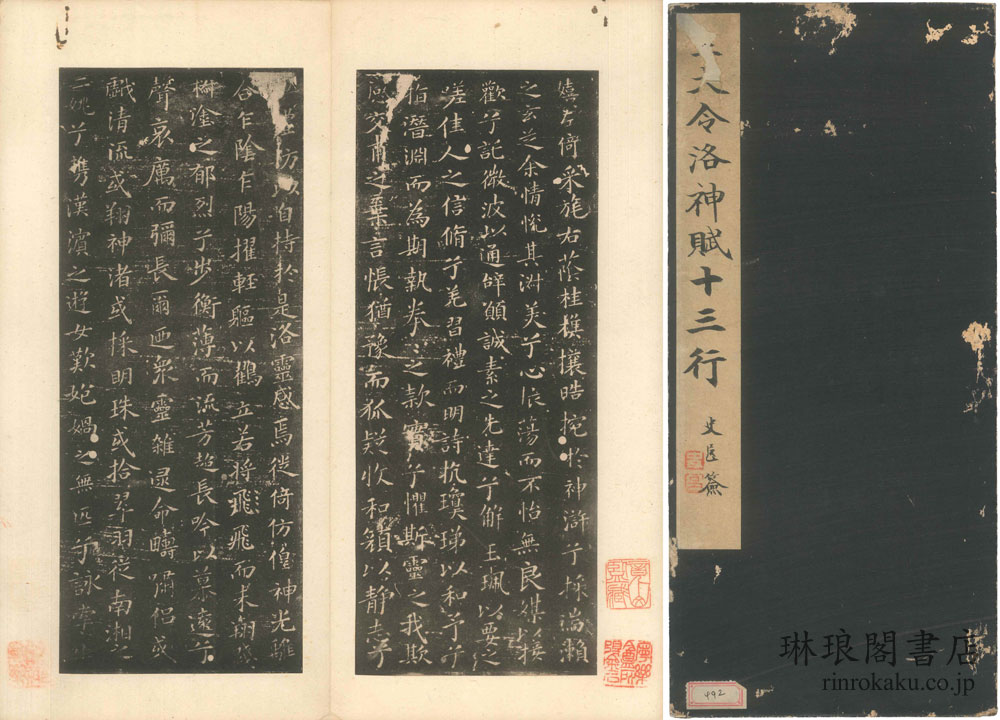 大令洛神賦十三行
史臣籤
嬉左倚采旄右蔭桂旗攘皓捥於神滸兮採湍瀨
之玄芝余情悅其淑美兮心振蕩而不怡無良媒以接
歡兮託微波以通辭願誠素之先達兮解玉珮以要之
嗟佳人之信脩兮羌習禮而明詩抗瓊珶以和予兮
指潛淵而為期執拳〻之款實兮懼斯靈之我欺
感交甫之棄言悵猶豫而狐疑收和顏以静志兮
防以自持於是洛靈感焉徙倚仿偟神光離
合乍陰乍陽擢輕軀以鶴立若將飛飛而未翔踐
椒塗之郁烈兮步衡薄而流芳超長吟以慕遠兮
聲哀厲而彌長爾迺衆靈雜遝命疇嘯侶或
戲清流或翔神渚或採明珠或拾翠羽從南湘之
二姚兮攜漢濱之遊女歎匏媧之無匹兮詠牽
492
琳琅閣書店
rinrokaku.co.jp